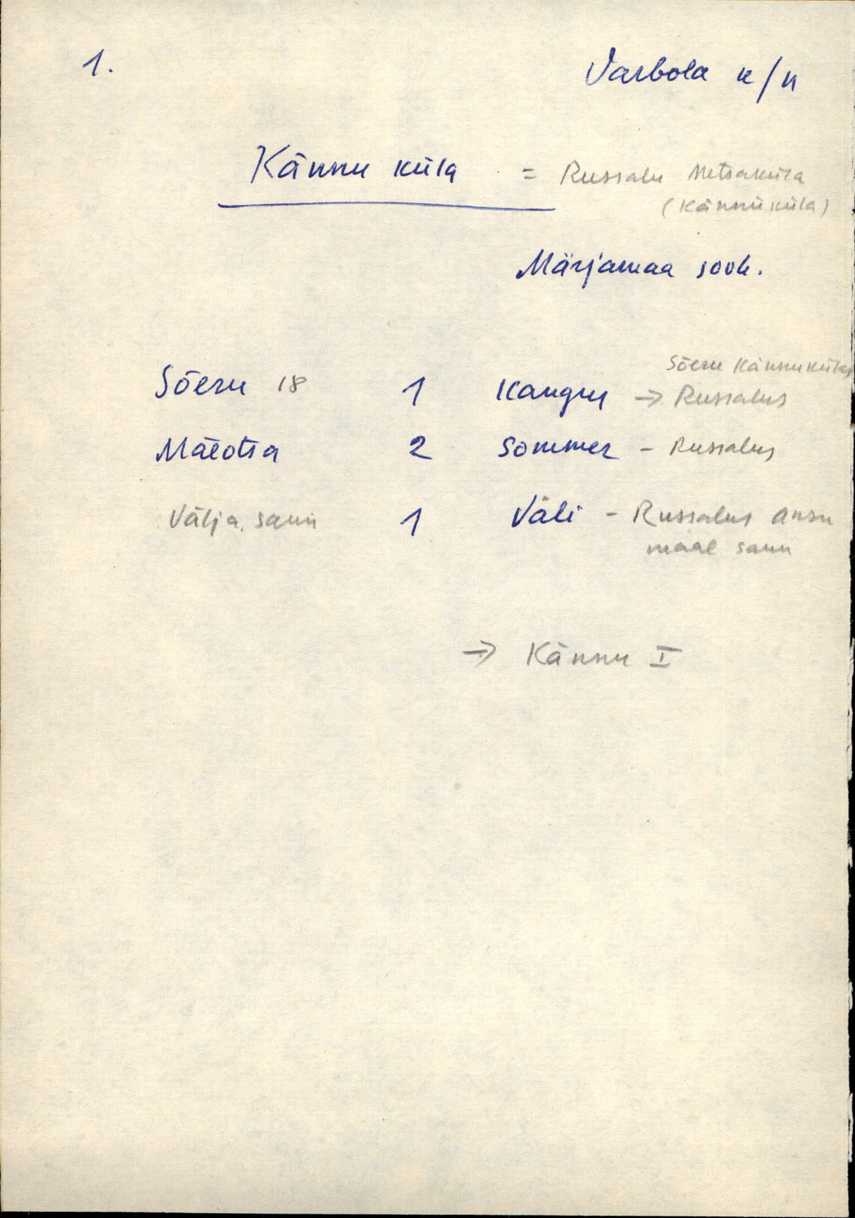 1. Varbola k/n
Kännu küla = Russalu Metsaküla
(Kännuküla)
Märjamaa sovh.
Sõeru Kännukülas
Sõeru 18 1 Kangur → Russalus
Mäeotsa 2 Sommer - Russalus
Välja saun 1 Väli - Russalus Ansu
maal saun
→ Kännu I